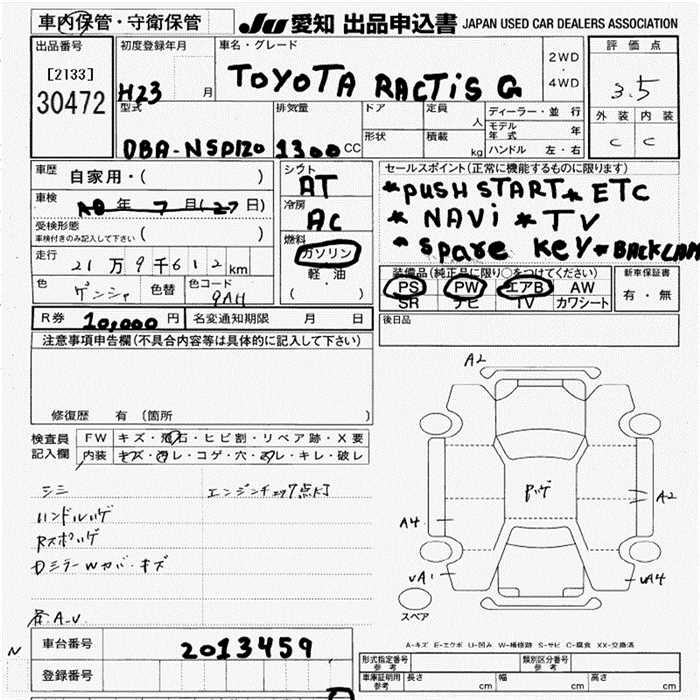 車内保管・守衛保管
JU 愛知 出品申込書 JAPAN USED CAR DEALERS ASSOCIATION
出品番号
[2133]
30472
初度登録年月
H23 月
車名・グレード
TOYOTA RACTiS G
2WD
・
4WD
評価点
3.5
外装 内装
C C
型式
DBA-NSP120
排気量
1300CC
ドア
定員
人
形状
積載
kg
ディーラー・並行
モデル年式 年
ハンドル 左・右
車歴
自家用・( )
車検
年 7 月(27日)
受検形態
車検付きのみ記入して下さい ( )
走行
21万9千612km
色
色替
色コード
9AH
シフト
AT
冷房
AC
燃料
ガソリン
・
軽・油
( )
セールスポイント(正常に機能するものに限ります)
*PUSH START * ETC
* NAVi * TV
* Spare KEY * BACKCAM
装備品(純正品に限り○をつけてください)
PS PW エアB AW
SR ナビ TV カワシート
新車保証書
有・無
R券 10,000円 名変通知期限 月 日
後日品
注意事項申告欄(不具合内容等は具体的に記入して下さい)
修復歴 有 (箇所 )
検査員
記入欄
FW キズ・飛石・ヒビ割・リペア跡・X要
内装 キズ・汚レ・コゲ・穴・スレ・キレ・破レ
シミ エンジンチェック点灯
ハンドルハゲ
Dミラーwカバーキズ
各A.U
A2
A4
A2
UA1
UA4
スペア
A-キズ E-エクボ U-凹み W-補修跡 S-サビ C-腐食 XX-交換済
N
車台番号 2013459
登録番号
形式指定番号
参考
類別区分番号
参考
車庫証明用
参考
長さ cm 幅 cm 高さ cm